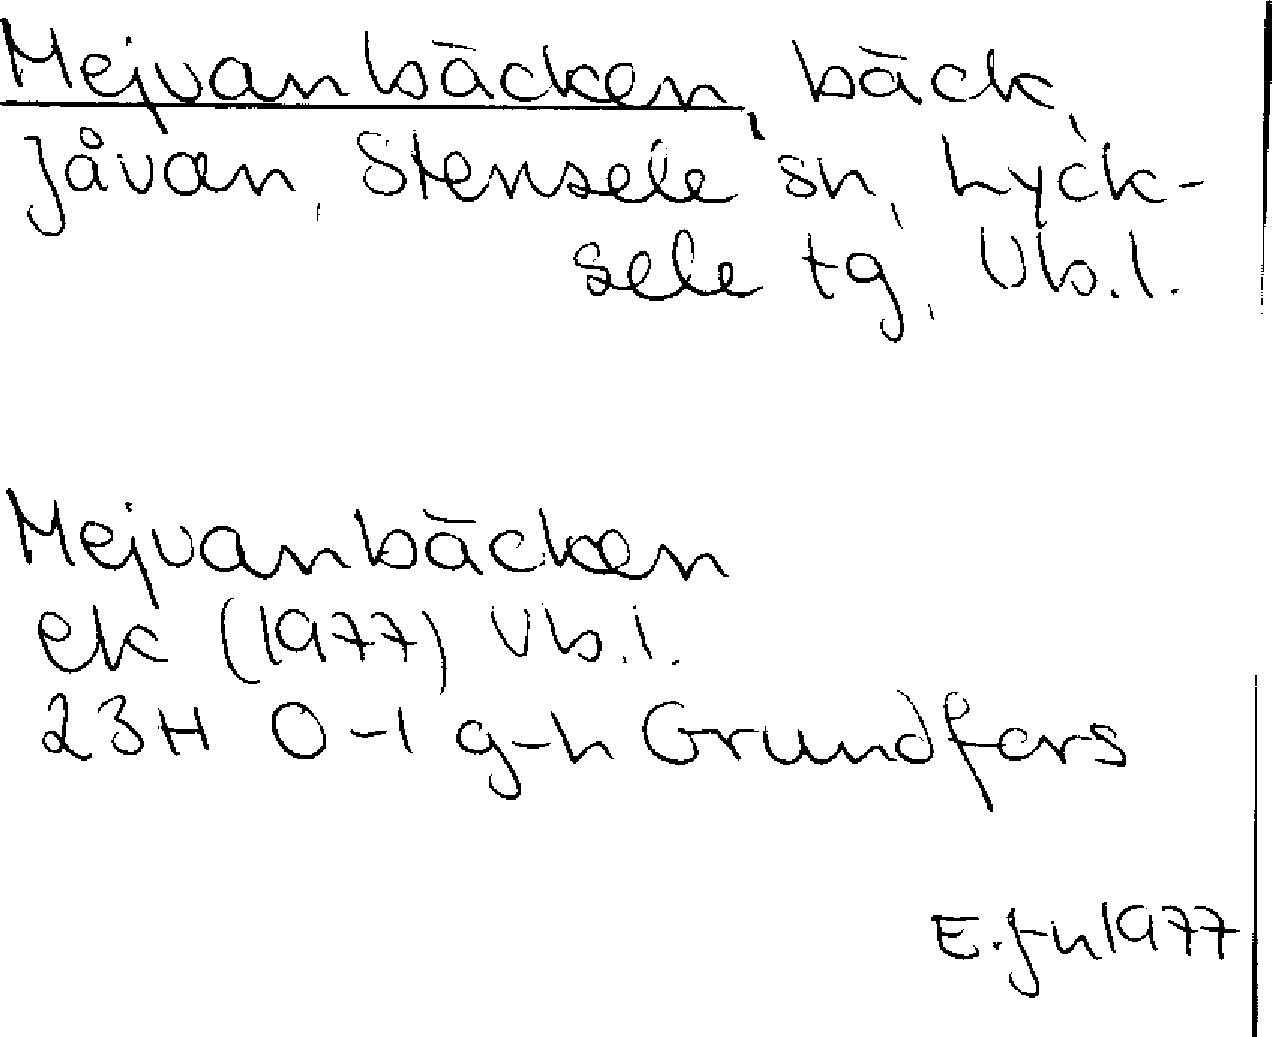 Mejvanbäcken, bäck,
Jåvan, Stensele sn, Lyck-
sele tg, Vb.l.
Mejvanbäcken
ek (1977) Vb.l.
23H 0-1 g-h Grundfors
E. 1977